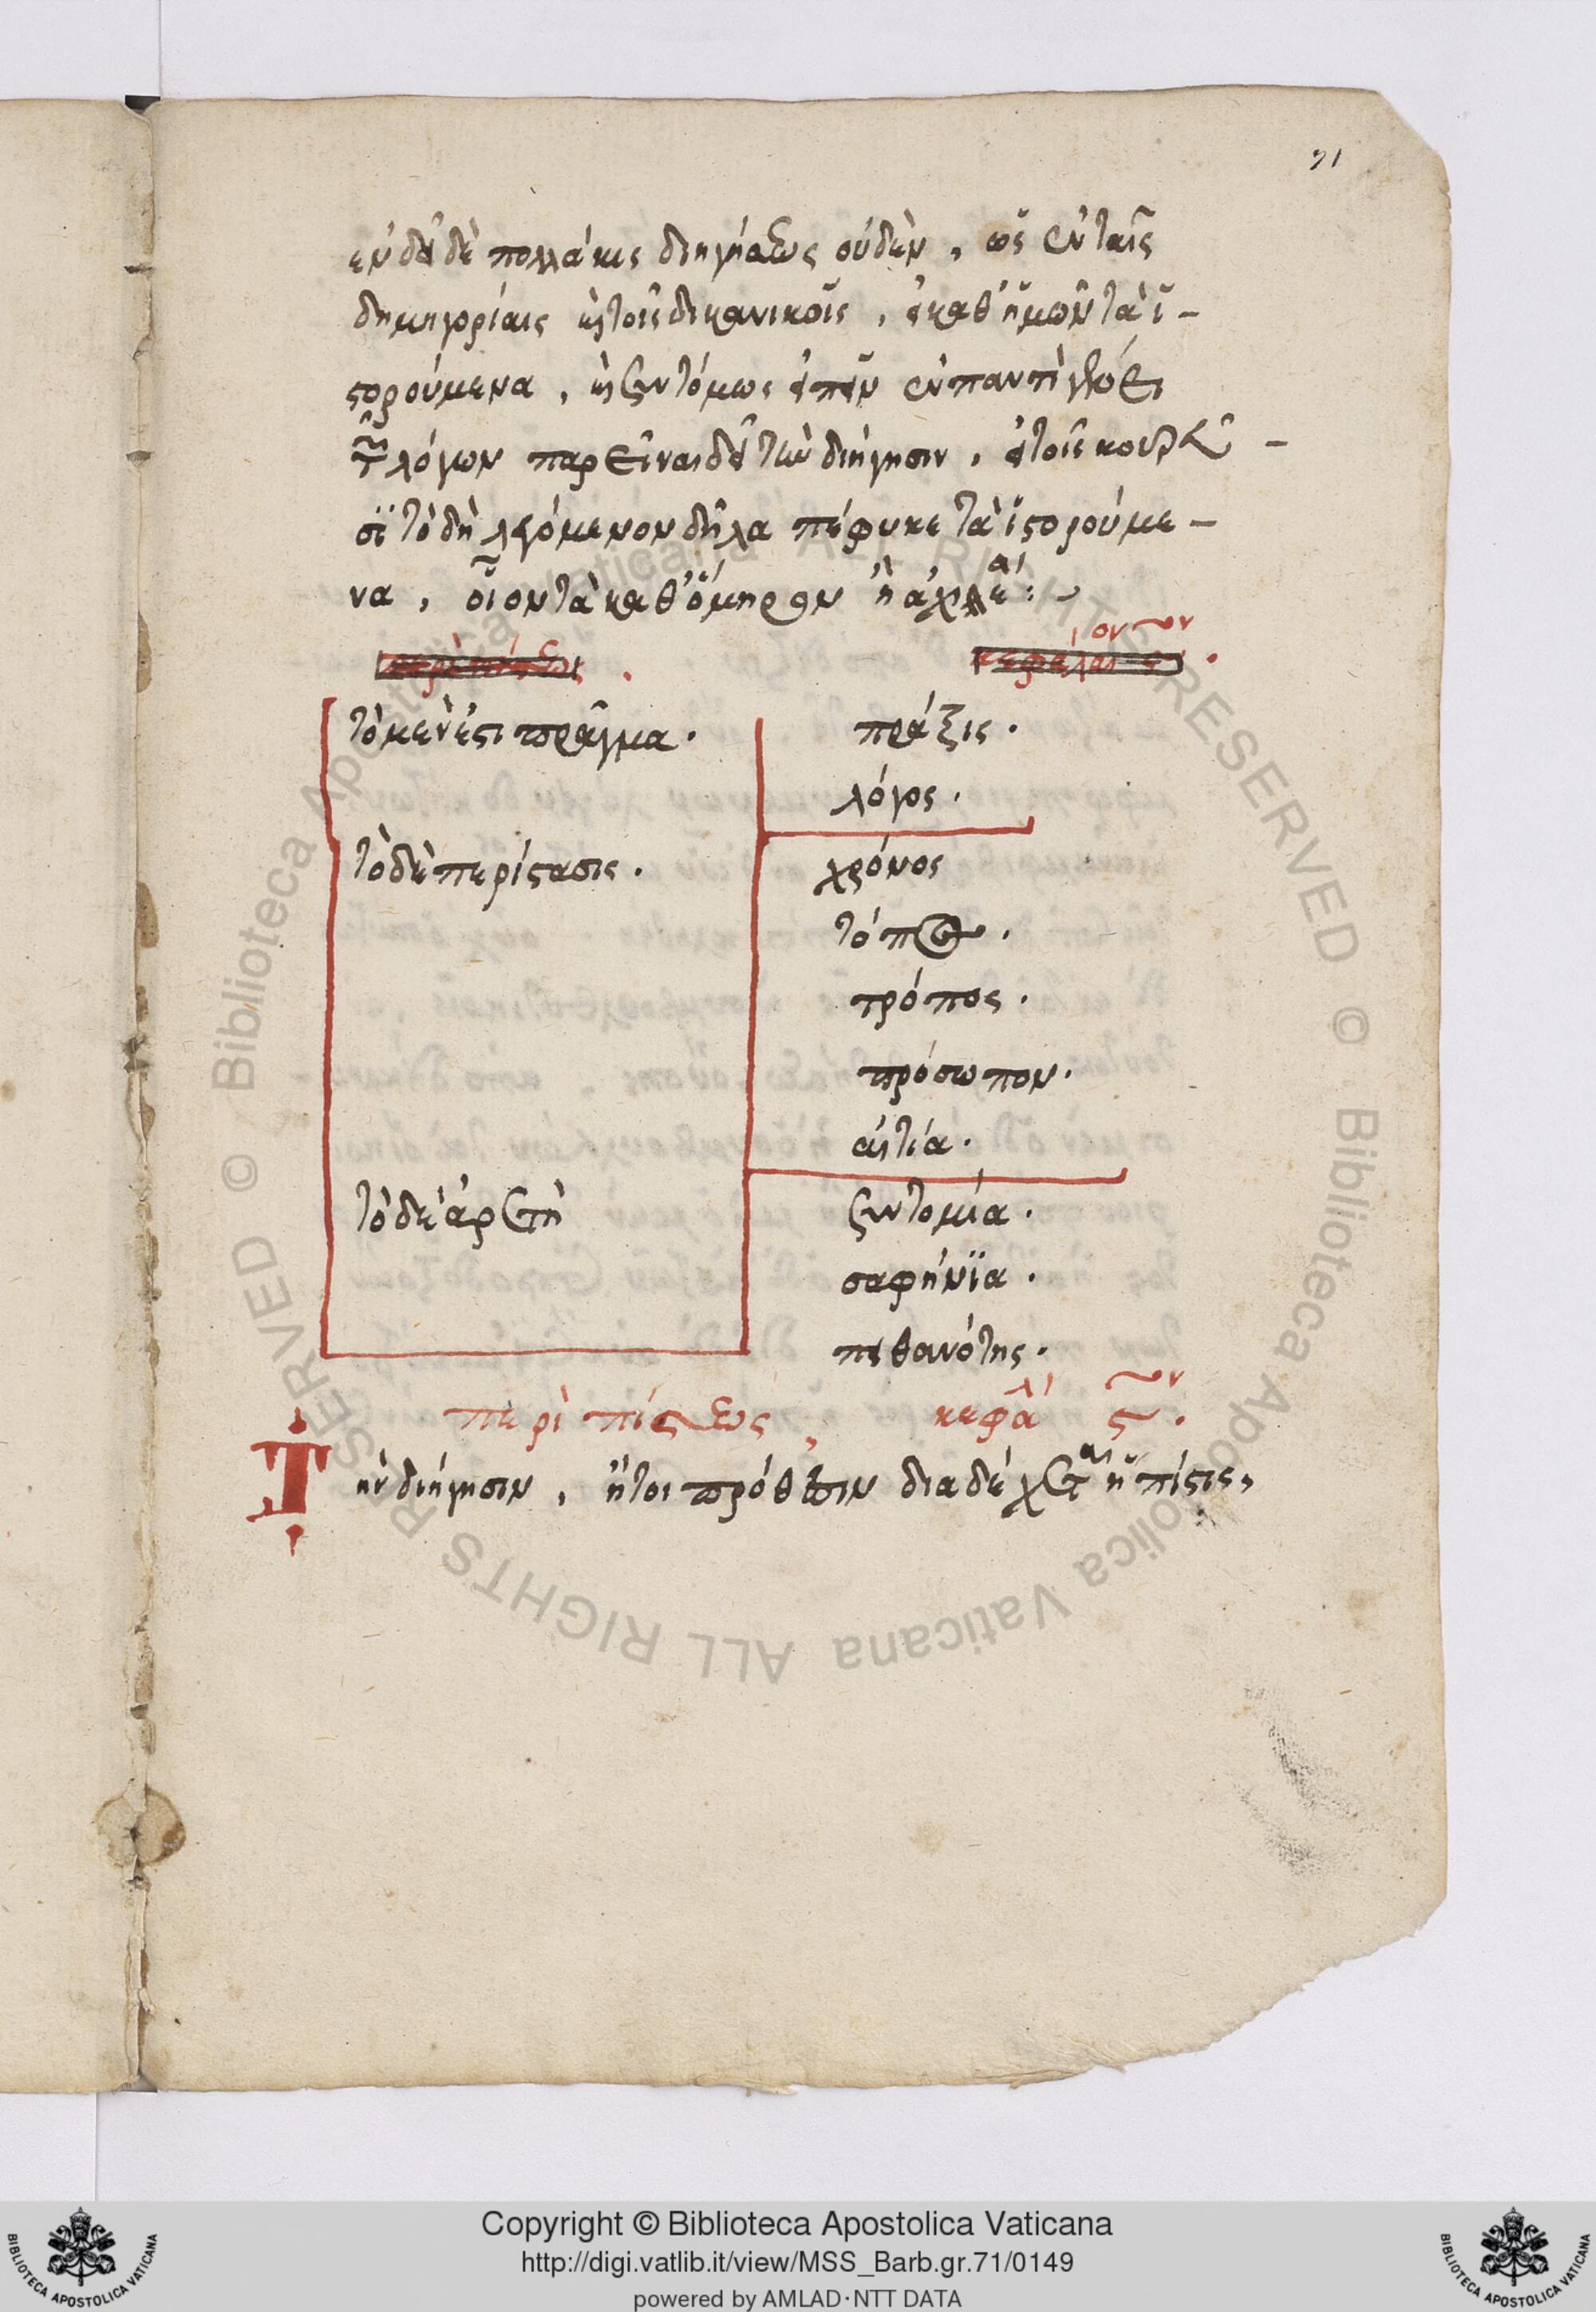 71
ενδεῖ δὲ πολλάκις διηγήσεως οὐδὲν, ὡς ἐν ταῖς
δημηγορίαις καὶ τοῖς δικανικοῖς, εἰ καθ' ἡμῶν τὰ ἱ-
στορούμενα, καὶ συντόμως εἰπεῖν ἐν παντὶ γένει
τῶν λόγων παρεῖναι δεῖ τὴν διήγησιν, εἰ τοῖς
σϊ τὸ δὴ λεγόμενον δῆλα πέφυκε τὰ ἱστορούμε-
να, οἷον τὰ καθ' ὅμηρον ἢ
περὶ πίστεως. κεφάλαιον
τὸ μὲν ἐστὶ πρᾶγμα. πράξις.
λόγος.
τὸ δὲ περίστασις. χρόνος
τόπος.
τρόπος.
πρόσωπον.
αἰτία.
τὸ δὲ ἀρετὴ συντομία.
σαφήνϊα.
πιθανότης.
περὶ πίστεως, κεφάλ ϛον.
Τὴν διήγησιν, ἤτοι πρόθεσιν διαδέχεται ἡ πίστις,
© Biblioteca Apostolica Vaticana ALL RIGHTS RESERVED © Biblioteca Apostolica Vaticana ALL RIGHTS RESERVED
Copyright © Biblioteca Apostolica Vaticana
http://digi.vatlib.it/view/MSS_Barb.gr.71/0149
powered by AMLAD·NTT DATA
BIBLIOTECA APOSTOLICA VATICANA
BIBLIOTECA APOSTOLICA VATICANA